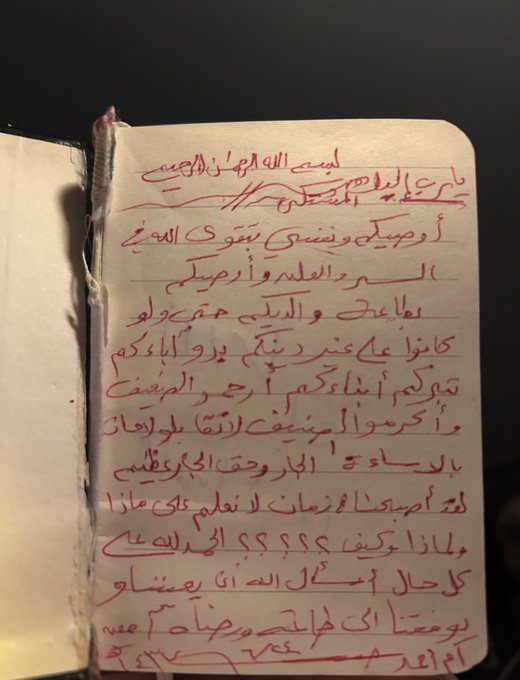 بسم الله الرحمن الرحيم
يارب إليك المشتكى
أوصيكم ونفسي بتقوى الله في
السر والعلن وأوصيكم
بطاعة والديكم حتى ولو
كانوا على غير دينكم بروا آباءكم
تبركم أبناءكم أرحمو الضعيف
وأكرموا الضيف لا
بالإساءة الجار وحق الجار عظيم
لقد أصبحنا في زمان لا نعلم على ماذا
ولماذا وكيف ؟؟؟؟؟ الحمدلله على
كل حال أسأل الله أن
يوفقنا الى طاعته ورضاه آمين
٦/٢٤ ١٤٣٧هـ